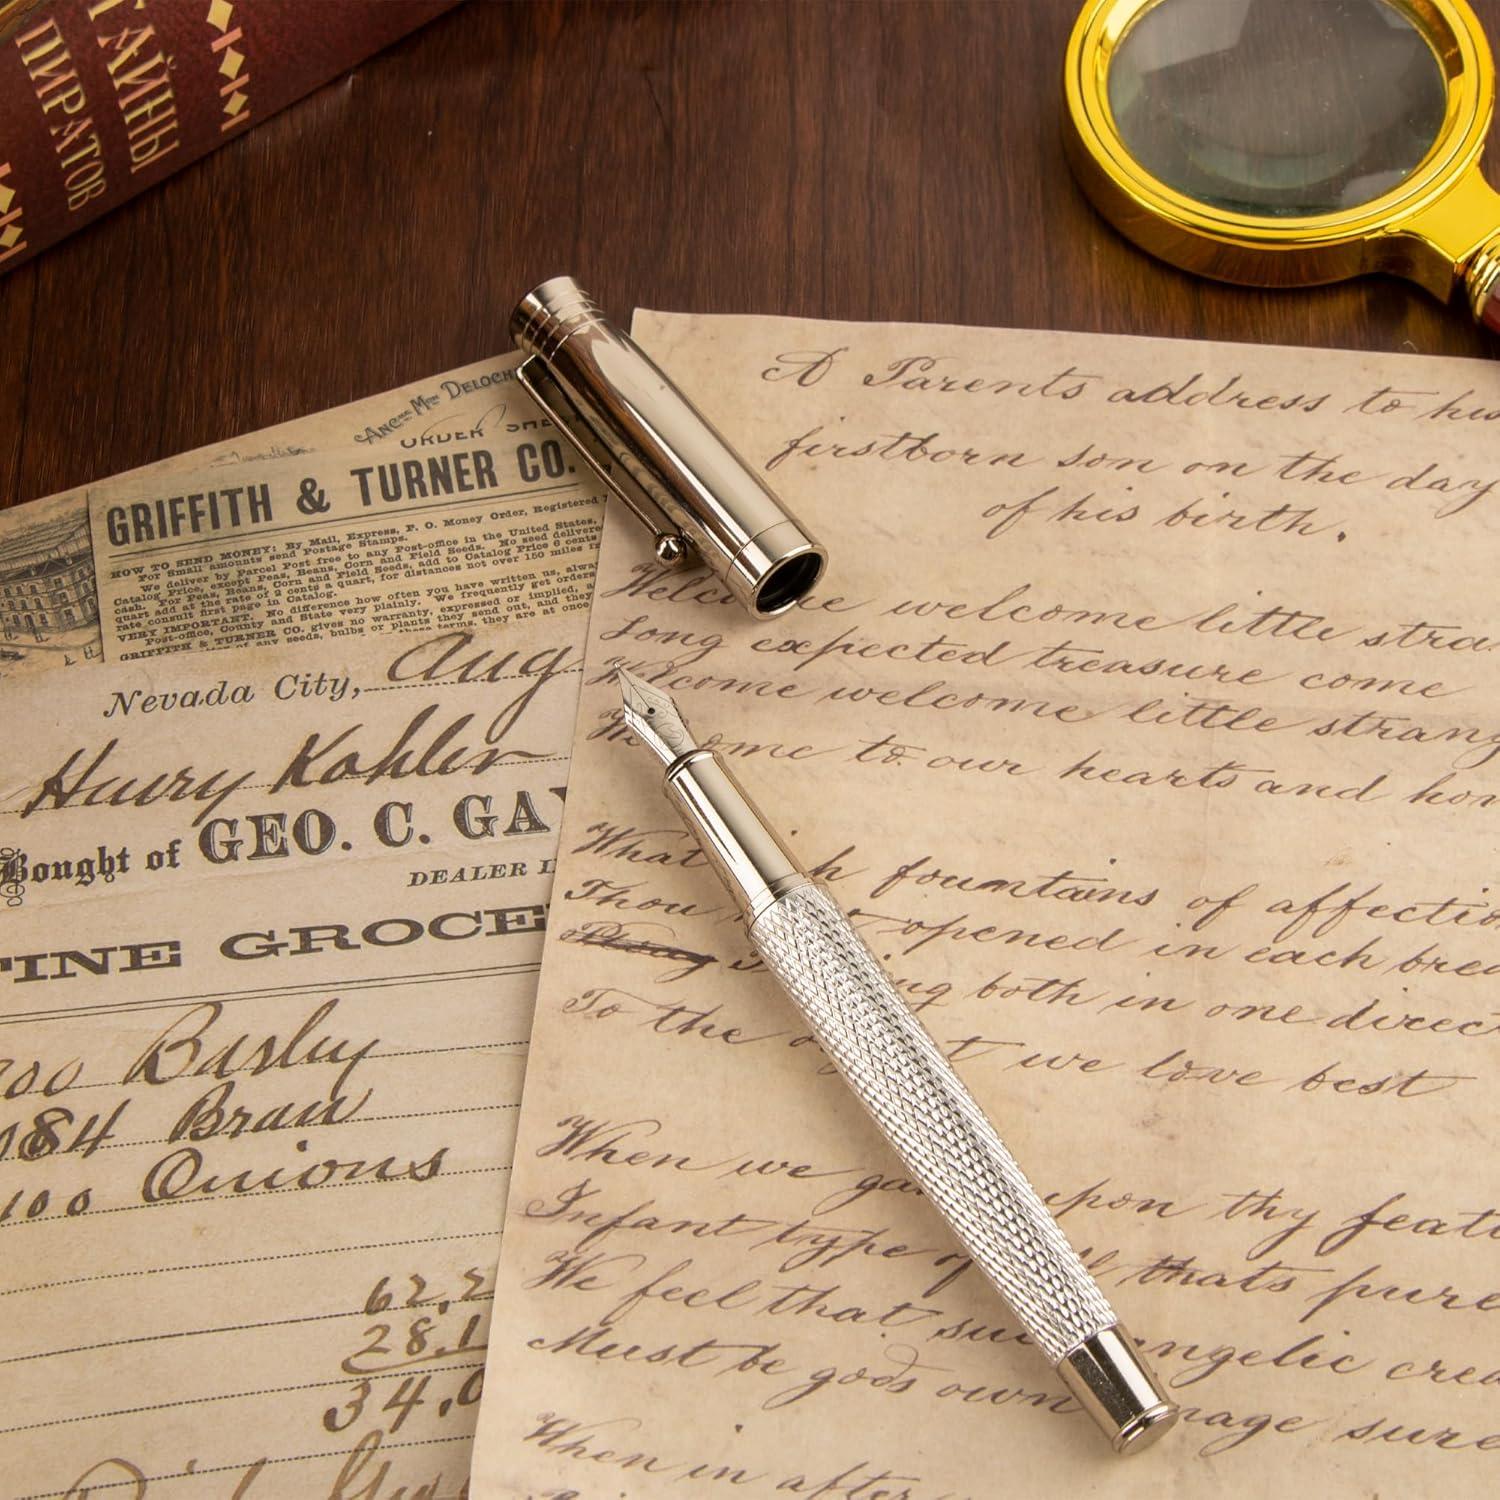 ТАЙНЫ
ПИРАТОВ
ORDER SHE
GRIFFITH & TURNER CO.
HOW TO SEND MONEY: By Mail, Express, P. O. Money Order, Registered
For Small amounts send Postage Stamps.
We deliver by Parcel Post free to any Post-office in the United States,
Catalog Price, except Peas, Beans, Corn and Field Seeds. No seed delivered
cash. For Peas, Beans, Corn and Field Seeds, add to Catalog Price 6 cents
quart add at the rate of 2 cents a quart, for distances not over 150 miles
rate consult first page in Catalog.
VERY IMPORTANT. No difference how often you have written us, always
Post-office, County and State very plainly. We frequently get orders
GRIFFITH & TURNER CO. gives no warranty, expressed or implied, a
of any seeds, bulbs or plants they send out, and they
these terms, they are at once
Nevada City, Aug
Harry Kohler
Bought of GEO. C. GAY
DEALER I
TINE GROCE
700 Barley
084 Bran
100 Onions
62.2
28.1
34.0
A Parents address to his
firstborn son on the day
of his birth.
Welcome welcome little stra
Long expected treasure come
Welcome welcome little strang
We ome to our hearts and hom
What h fountains of affectio
Thou opened in each brea
ng both in one direct
To the t we love best
When we ga upon thy featu
Infant type of thats pure
We feel that su ngelic crea
Must be gods own mage sure
When in after